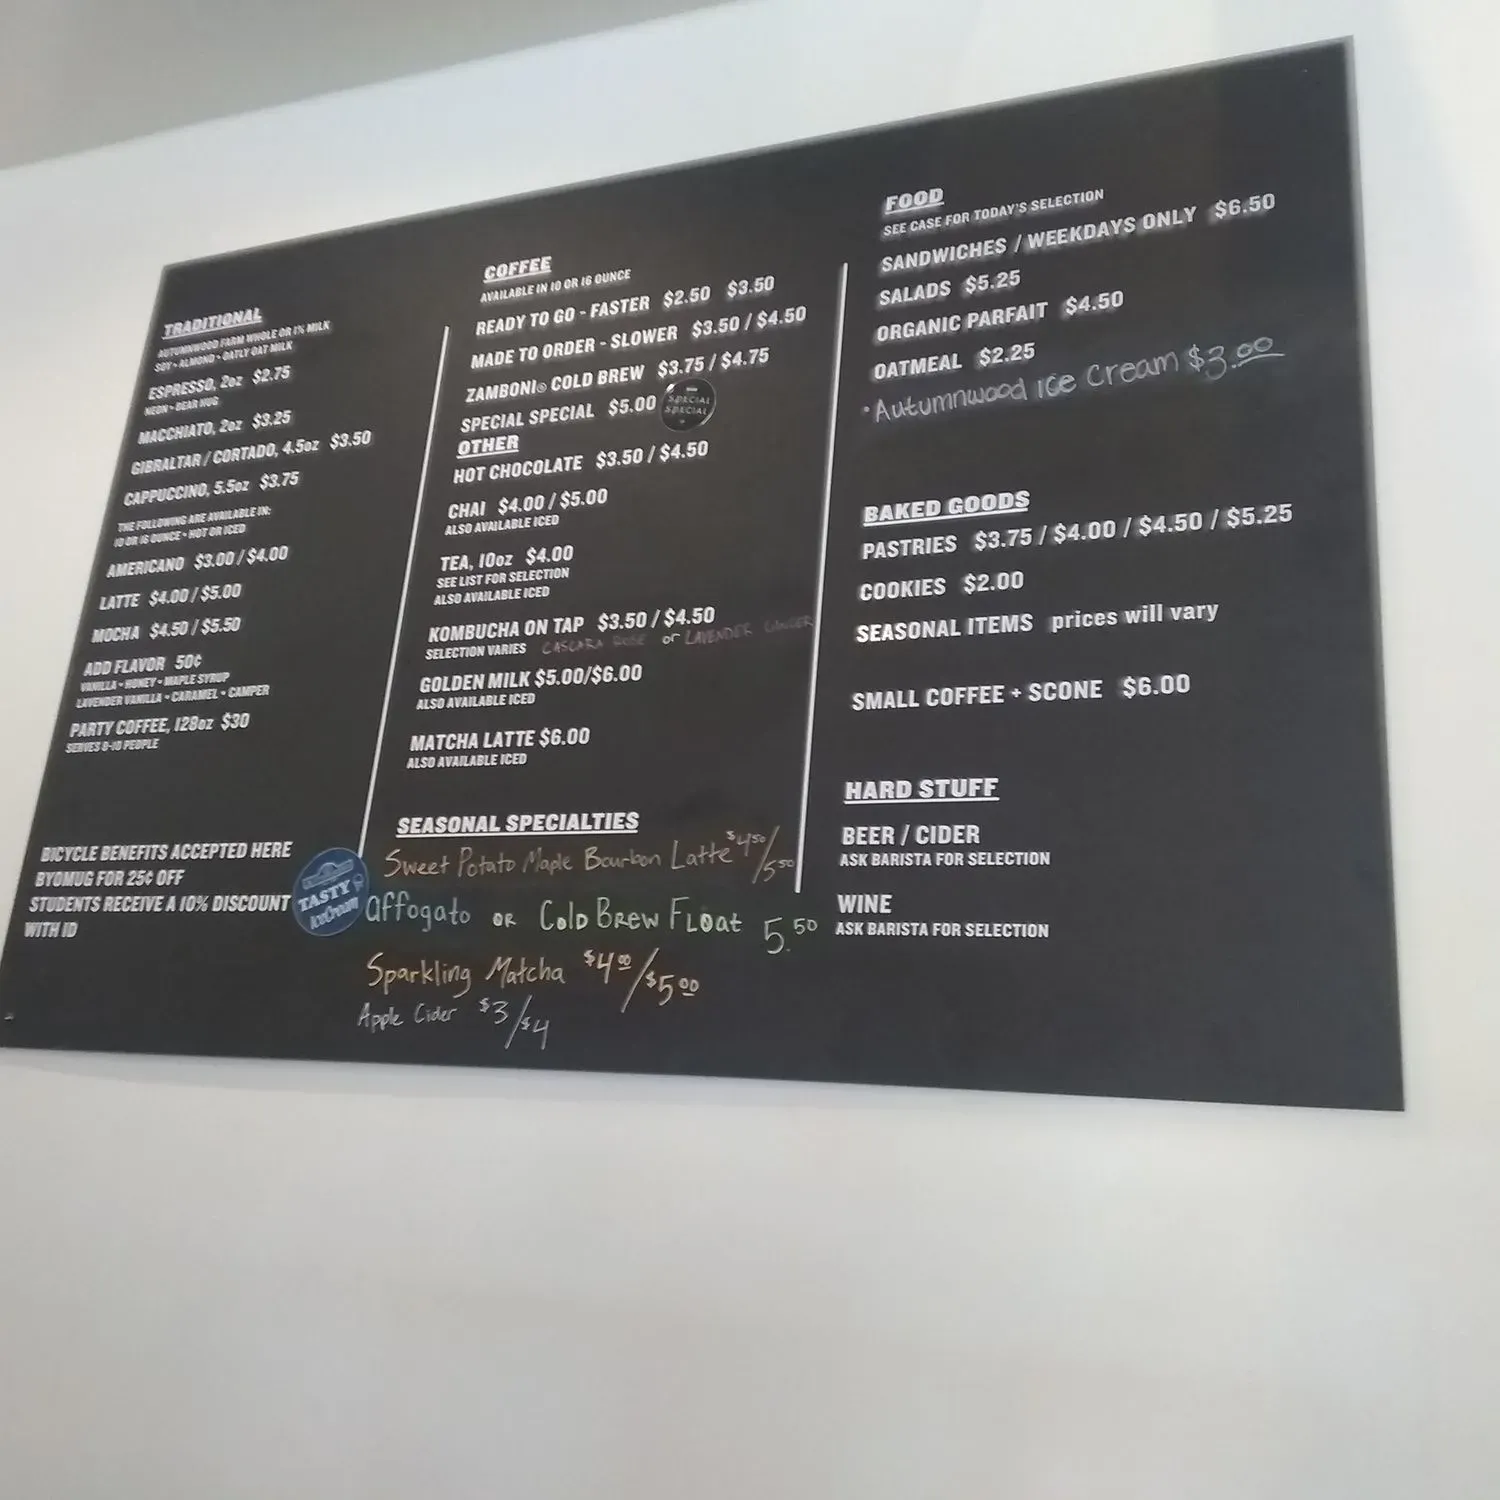 TRADITIONAL
AUTUMNWOOD FARM WHOLE OR 1% MILK
SOY • ALMOND • OATLY OAT MILK
ESPRESSO, 2oz $2.75
NEON • BEAR HUG
MACCHIATO, 2oz $3.25
GIBRALTAR / CORTADO, 4.5oz $3.50
CAPPUCCINO, 5.5oz $3.75
THE FOLLOWING ARE AVAILABLE IN:
10 OR 16 OUNCE • HOT OR ICED
AMERICANO $3.00 / $4.00
LATTE $4.00 / $5.00
MOCHA $4.50 / $5.50
ADD FLAVOR 50¢
VANILLA • HONEY • MAPLE SYRUP
LAVENDER VANILLA • CARAMEL • CAMPER
PARTY COFFEE, 128oz $30
SERVES 8-10 PEOPLE
BICYCLE BENEFITS ACCEPTED HERE
BYOMUG FOR 25¢ OFF
STUDENTS RECEIVE A 10% DISCOUNT
WITH ID
TASTY
Ice Cream
COFFEE
AVAILABLE IN 10 OR 16 OUNCE
READY TO GO - FASTER $2.50 $3.50
MADE TO ORDER - SLOWER $3.50 / $4.50
ZAMBONI® COLD BREW $3.75 / $4.75
SPECIAL SPECIAL $5.00
SPECIAL
SPECIAL
OTHER
HOT CHOCOLATE $3.50 / $4.50
CHAI $4.00 / $5.00
ALSO AVAILABLE ICED
TEA, 10oz $4.00
SEE LIST FOR SELECTION
ALSO AVAILABLE ICED
KOMBUCHA ON TAP $3.50 / $4.50
SELECTION VARIES CASCARA ROSE or LAVENDER GINGER
GOLDEN MILK $5.00/$6.00
ALSO AVAILABLE ICED
MATCHA LATTE $6.00
ALSO AVAILABLE ICED
SEASONAL SPECIALTIES
Sweet Potato Maple Bourbon Latte $4.50/5.50
affogato OR Cold Brew Float 5.50
Sparkling Matcha $4.00/$5.00
Apple Cider $3/$4
FOOD
SEE CASE FOR TODAY'S SELECTION
SANDWICHES / WEEKDAYS ONLY $6.50
SALADS $5.25
ORGANIC PARFAIT $4.50
OATMEAL $2.25
• Autumnwood ice cream $3.00
BAKED GOODS
PASTRIES $3.75 / $4.00 / $4.50 / $5.25
COOKIES $2.00
SEASONAL ITEMS prices will vary
SMALL COFFEE + SCONE $6.00
HARD STUFF
BEER / CIDER
ASK BARISTA FOR SELECTION
WINE
ASK BARISTA FOR SELECTION